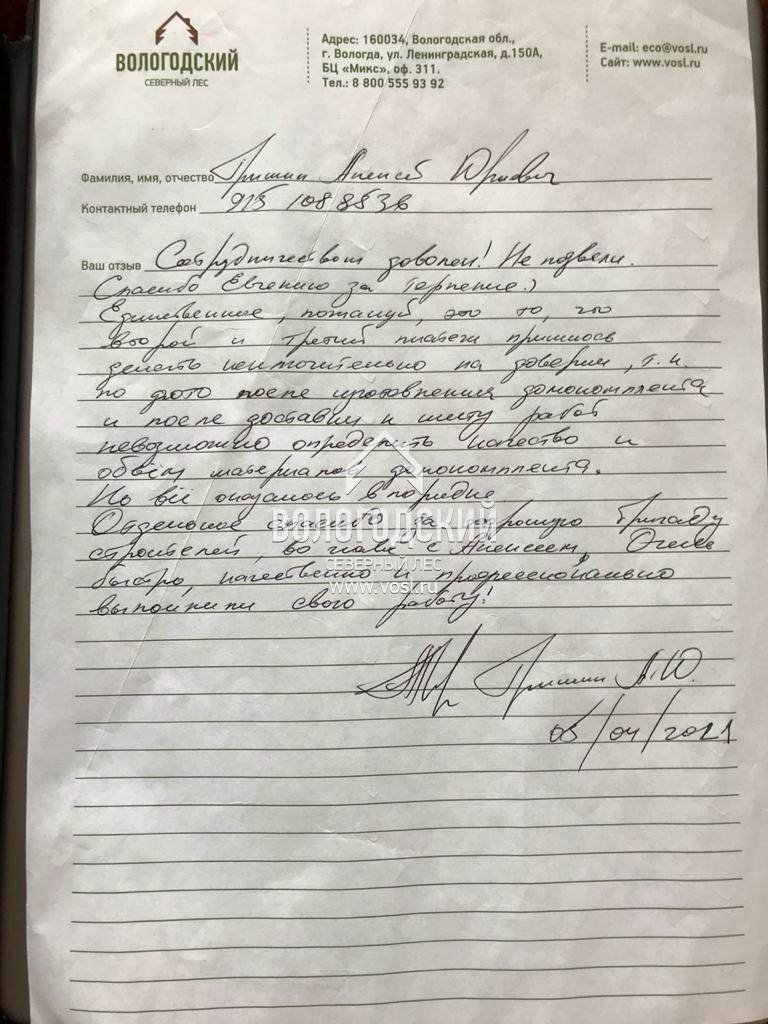 ВОЛОГОДСКИЙ
СЕВЕРНЫЙ ЛЕС
Адрес: 160034, Вологодская обл.,
г. Вологда, ул. Ленинградская, д.150А,
БЦ «Микс», оф. 311.
Тел.: 8 800 555 93 92
E-mail: eco@vosl.ru
Сайт: www.vosl.ru
Фамилия, имя, отчество Гришин Алексей Юрьевич
Контактный телефон 915 108 8536
Ваш отзыв Сотрудничеством доволен! Не подвели.
Спасибо Евгению за терпение:)
Единственное, пожалуй, это то, что
второй и третий платежи пришлось
делать исключительно на доверии, т.к.
по фото после изготовления домокомплекта
и после доставки к месту работ
невозможно определить качество и
объём материалов домокомплекта.
Но всё оказалось в порядке.
Отдельное спасибо за хорошую бригаду
строителей, во главе с Алексеем. Очень
быстро, качественно и профессионально
выполнили свою работу!
Гришин А.Ю.
05/04/2021
ВОЛОГОДСКИЙ
СЕВЕРНЫЙ ЛЕС
www.vosl.ru
ВОЛОГОДСКИЙ
СЕВЕРНЫЙ ЛЕС